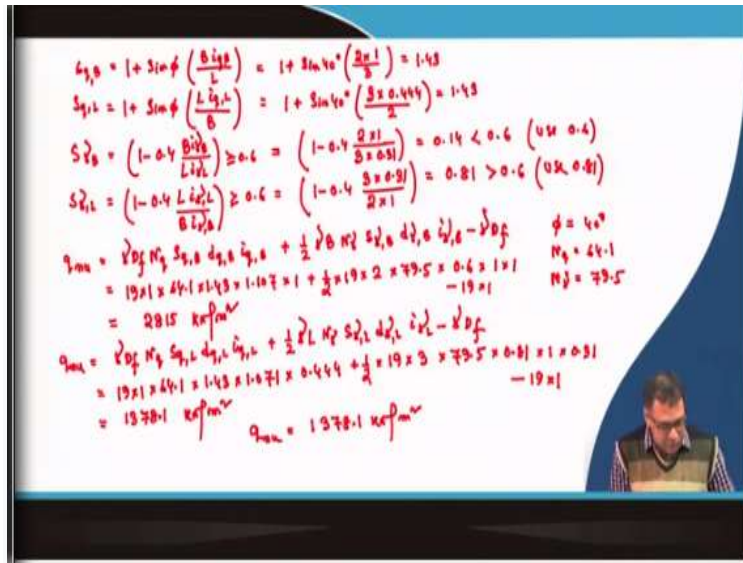 Sq,B = 1 + Sinφ (B iq,B / L) = 1 + Sin40° (2×1 / 3) = 1.43
Sq,L = 1 + Sinφ (L iq,L / B) = 1 + Sin40° (3 × 0.444 / 2) = 1.43
Sγ,B = (1 - 0.4 B iγ,B / L iγ,L) ≥ 0.6 = (1 - 0.4 2×1 / 3×0.31) = 0.14 < 0.6 (use 0.6)
Sγ,L = (1 - 0.4 L iγ,L / B iγ,B) ≥ 0.6 = (1 - 0.4 3×0.31 / 2×1) = 0.81 > 0.6 (use 0.81)
qnu = γDf Nq Sq,B dq,B iq,B + 1/2 γB Nγ Sγ,B dγ,B iγ,B - γDf φ = 40°
= 19×1 × 64.1 × 1.43 × 1.107 × 1 + 1/2 × 19 × 2 × 79.5 × 0.6 × 1 × 1 - 19×1 Nq = 64.1
= 2815 kN/m² Nγ = 79.5
qnu = γDf Nq Sq,L dq,L iq,L + 1/2 γL Nγ Sγ,L dγ,L iγ,L - γDf
= 19×1 × 64.1 × 1.43 × 1.071 × 0.444 + 1/2 × 19 × 3 × 79.5 × 0.81 × 1 × 0.31 - 19×1
= 1378.1 kN/m²
qnu = 1378.1 kN/m²